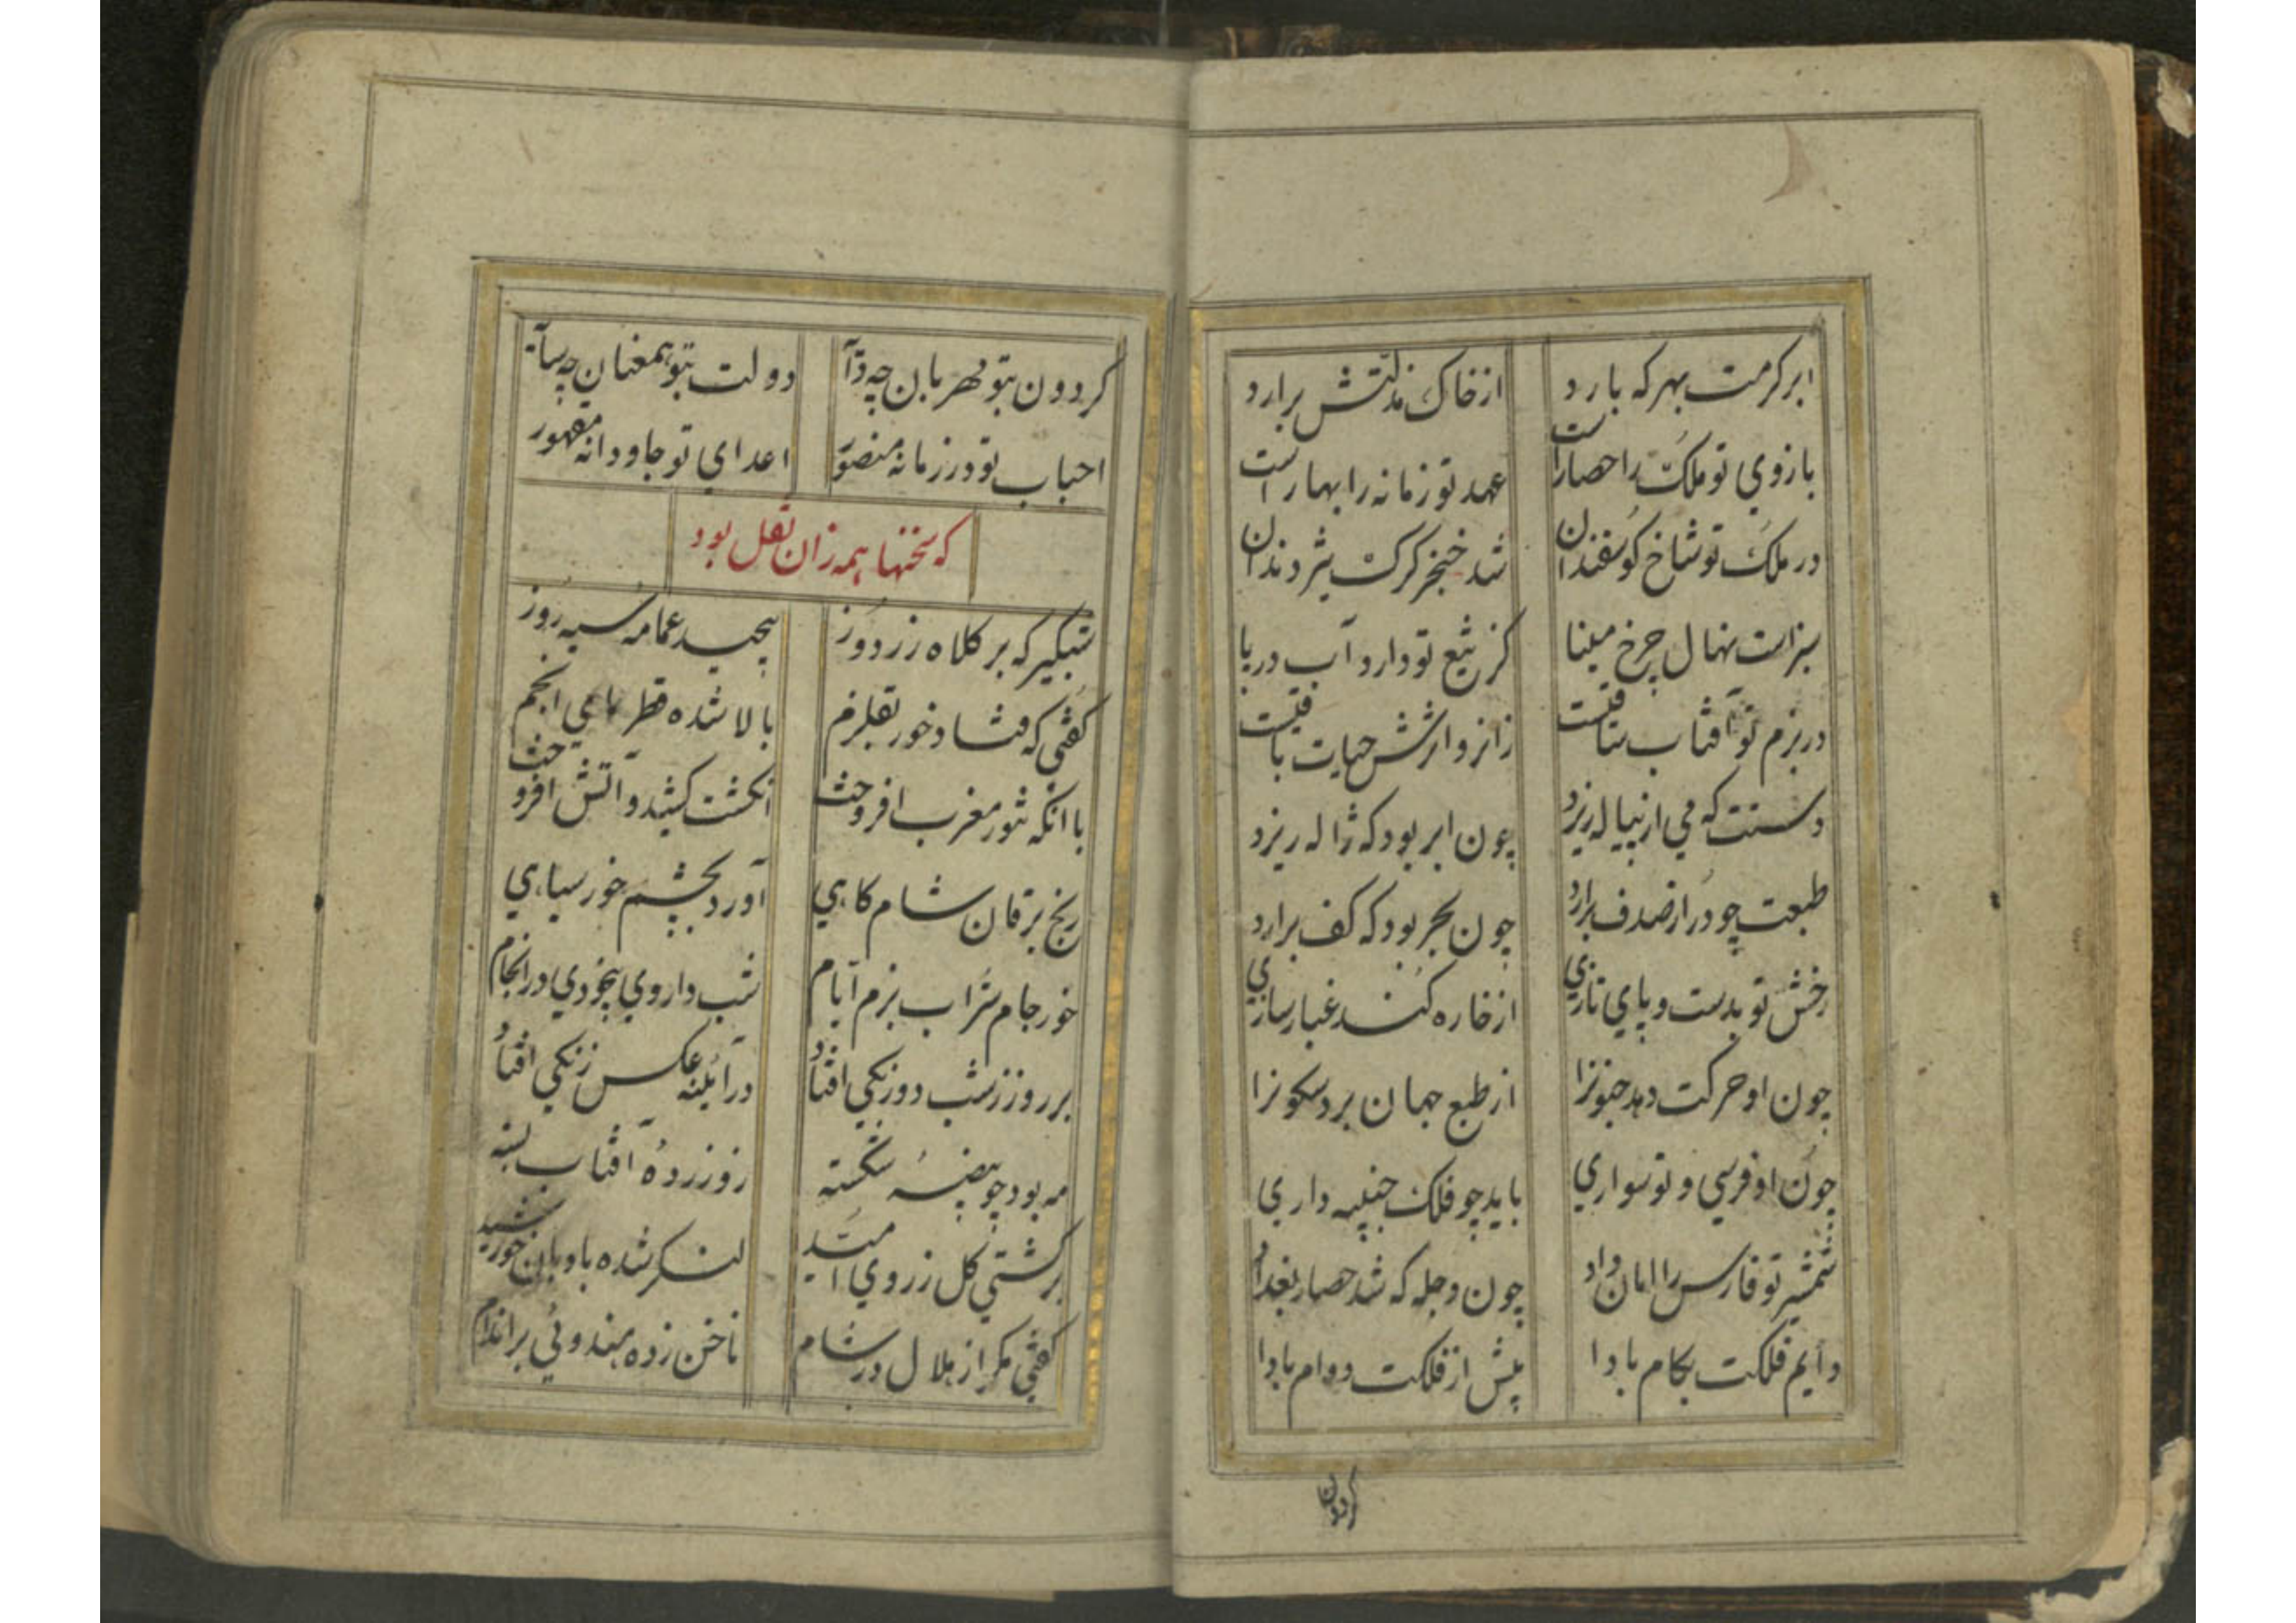 ابر کرمت بهر که بارد از خاک مذلتش برارد
بازوی تو ملک را حصار است عهد تو زمانه را بهار است
در ملک تو شاخ کوسفندان شد خنجر کرک تیز دندان
سبز است نهال چرخ مینا کز تیغ تو دارد آب دریا
در بزم تو آفتاب ساقیست زانرو اثرش حیات باقیست
دستت که می از پیاله ریزد چون ابر بود که ژاله ریزد
طبعت چو در از صدف برارد چون بحر بود که کف برارد
رخش تو بدست و پای تازی از خاره کند غبارسازی
چون او حرکت دهد جنونرا از طبع جهان برد سکونرا
چون او فرسی و تو سواری باید چو فلک جنیبه داری
شمشیر تو فارس را امان داد چون دجله که شد حصار بغداد
دایم فلکت بکام بادا پیش از فلکت دوام بادا
کردون
کردون بتو مهربان چو دآیه دولت بتو همعنان چو سآیه
احباب تو در زمانه منصور اعدای تو جاودانه مقهور
که سخنها همه زان نقل بود
شبکیر که بر کلاه زردوز پیچید عمامه سیه روز
کفتی که فتاد خور بقلزم بالا شده قطرهای انجم
با انکه تنور مغرب افروخت انکشت کشید و آتش افروخت
رنج یرقان شام کاهی آورد بچشم خور سیاهی
خور جام شراب بزم ایام شب داروی بیخودی در انجام
بر روز ز شب دو زنکی افتاد در آینه عکس زنکی افتاد
مه بود چو بیضه شکسته روز زرده آفتاب بسته
بر کشتی کل ز روی امید لنکر شده بادبان خورشید
کفتی مکر از هلال در شام ناخن زده هندوئی بر اندام